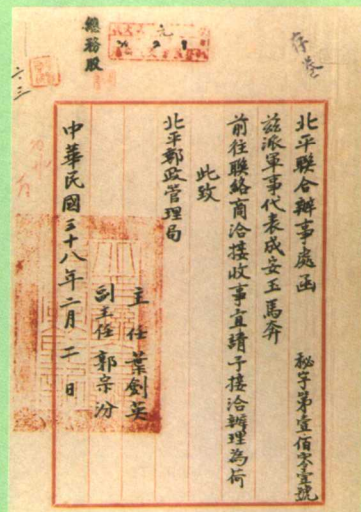 存卷
總務股
北平聯合辦事處函 秘字第壹佰零壹號
茲派軍事代表成安玉 馬奔
前往聯絡商洽接收事宜請予接洽辦理為荷
此致
北平郵政管理局
主任 葉劍英
副主任 郭宗汾
中華民國三十八年二月二日